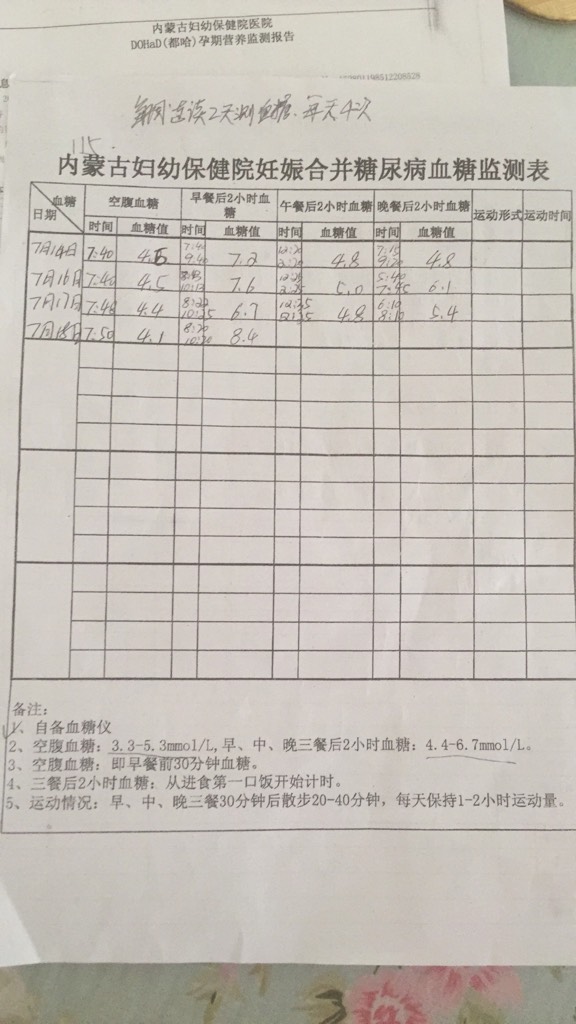 内蒙古妇幼保健院医院
DOHaD(都哈)孕期营养监测报告
息
每周连读2天测血糖、每天4次
115.
内蒙古妇幼保健院妊娠合并糖尿病血糖监测表
日期 血糖 空腹血糖 早餐后2小时血糖 午餐后2小时血糖 晚餐后2小时血糖 运动形式 运动时间
时间 血糖值 时间 血糖值 时间 血糖值 时间 血糖值
7月14日 7:40 4.6 7:40 9:40 7.2 4.8 7:15 4.8
7月16日 7:40 4.5 7.6 5.0 5:40 7:45 6.1
7月17日 7:48 4.4 8:22 10:25 6.7 12:35 4.8 6:10 8:10 5.4
7月18日 7:50 4.1 8:20 10:20 8.4
备注:
1、自备血糖仪
2、空腹血糖: 3.3-5.3mmol/L,早、中、晚三餐后2小时血糖: 4.4-6.7mmol/L。
3、空腹血糖: 即早餐前30分钟血糖。
4、三餐后2小时血糖: 从进食第一口饭开始计时。
5、运动情况: 早、中、晚三餐30分钟后散步20-40分钟, 每天保持1-2小时运动量。